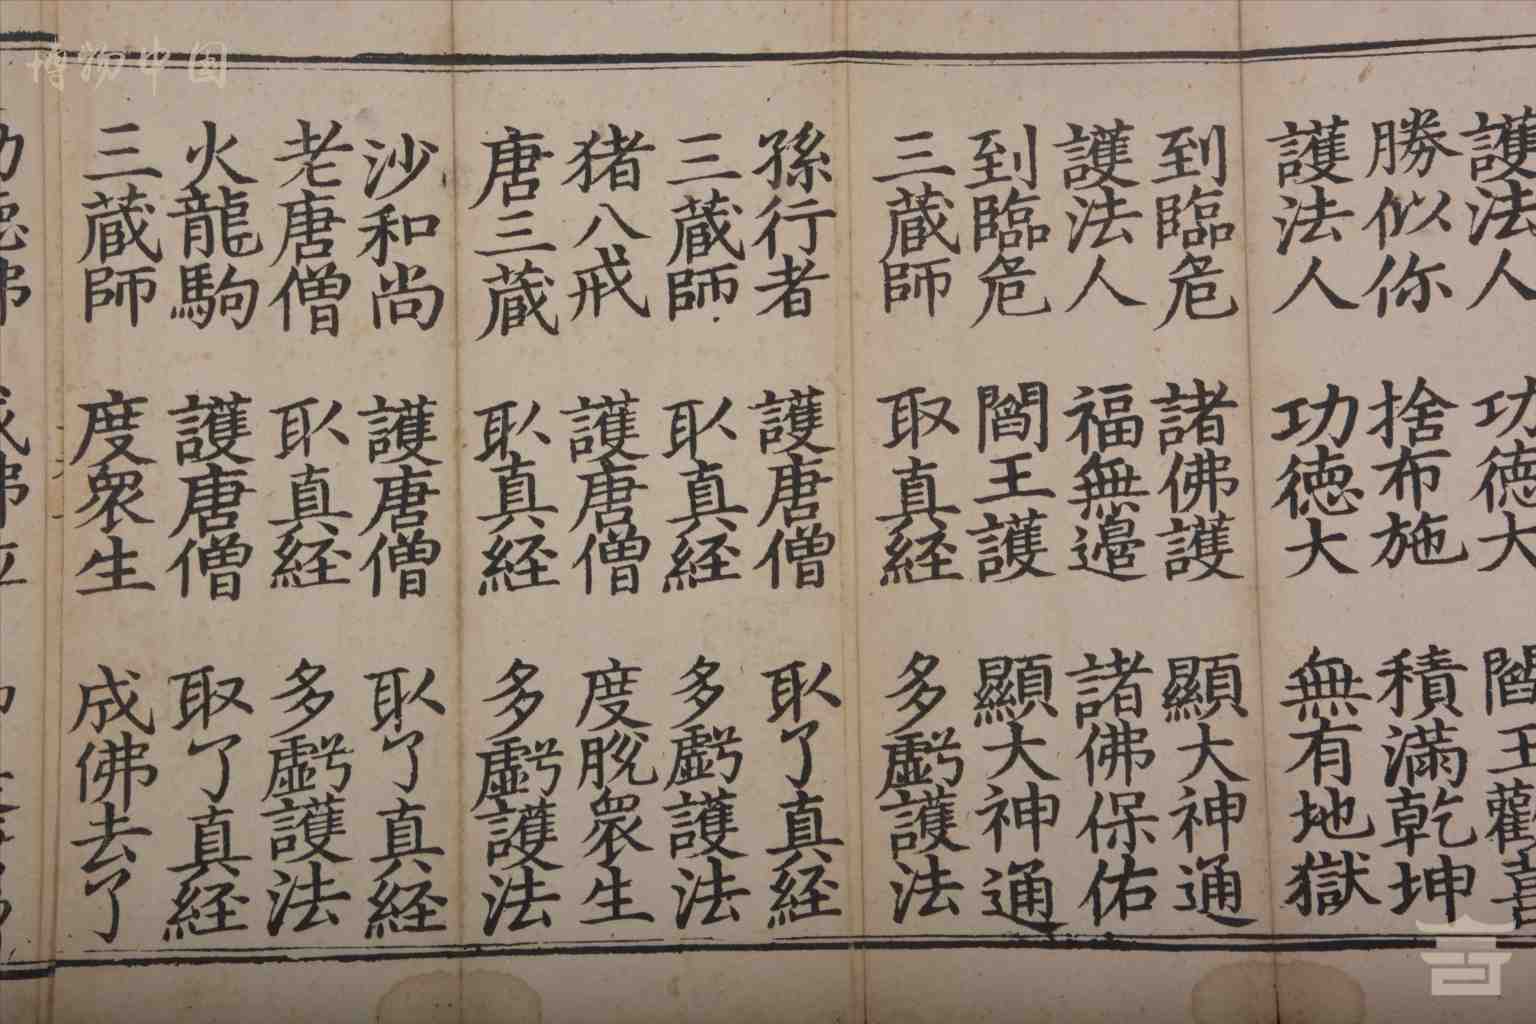 博物中国
護法人 功德大 閻王歡喜
勝似你 捨布施 積滿乾坤
護法人 功德大 無有地獄
到臨危 諸佛護 顯大神通
護法人 福無邊 諸佛保佑
到臨危 閻王護 顯大神通
三蔵師 取真経 多虧護法
孫行者 護唐僧 取了真経
三蔵師 取真経 多虧護法
猪八戒 護唐僧 度脫衆生
唐三蔵 取真経 多虧護法
沙和尚 護唐僧 取了真経
老唐僧 取真経 多虧護法
火龍駒 護唐僧 取了真経
三蔵師 度衆生 成佛去了